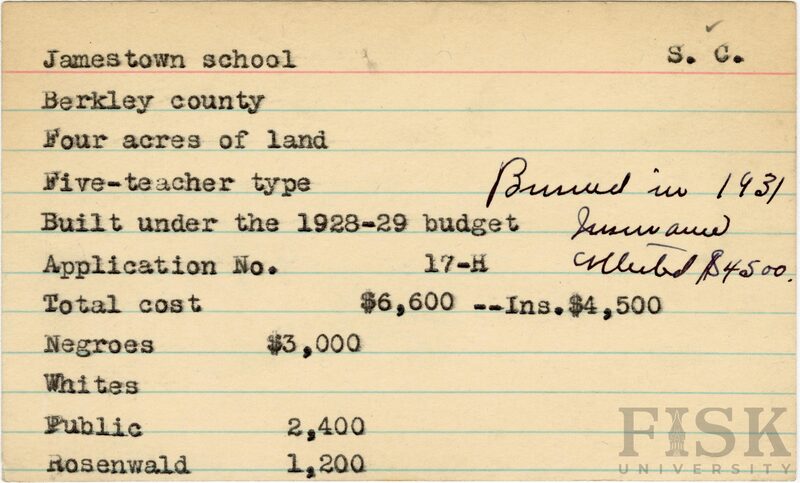 Jamestown school S. C.
Berkley county
Four acres of land
Five-teacher type Burned in 1931
Built under the 1928-29 budget Insurance
Application No. 17-H Collected $4500.
Total cost $6,600 --Ins.$4,500
Negroes $3,000
Whites
Public 2,400
Rosenwald 1,200
FISK
UNIVERSITY